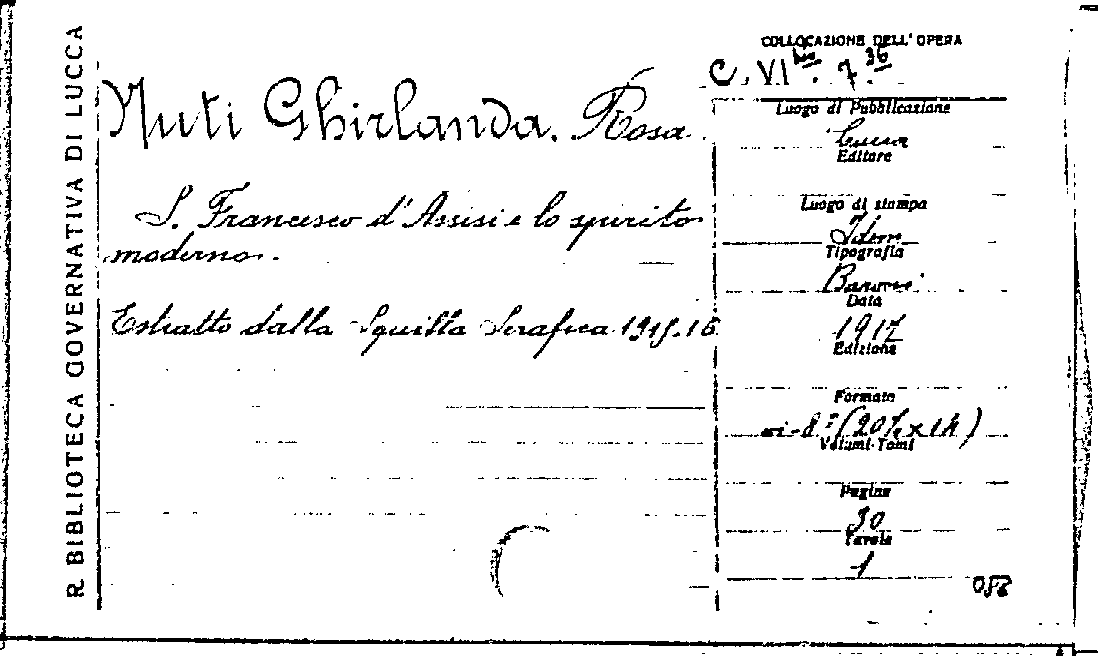 R. BIBLIOTECA GOVERNATIVA DI LUCCA
Nuti Ghirlanda. Rosa.
S. Francesco d'Assisi e lo spirito
moderno.
Estratto dalla Squilla Serafica 1915.16
COLLOCAZIONE DELL'OPERA
C. VI 7. 36
Luogo di Pubblicazione
Lucca
Editore
Luogo di stampa
Idem
Tipografia
Baroni
Data
1917
Edizione
Formato
in-8º (20½ x 14)
Volumi-Tomi
Pagine
30
Tavole
1